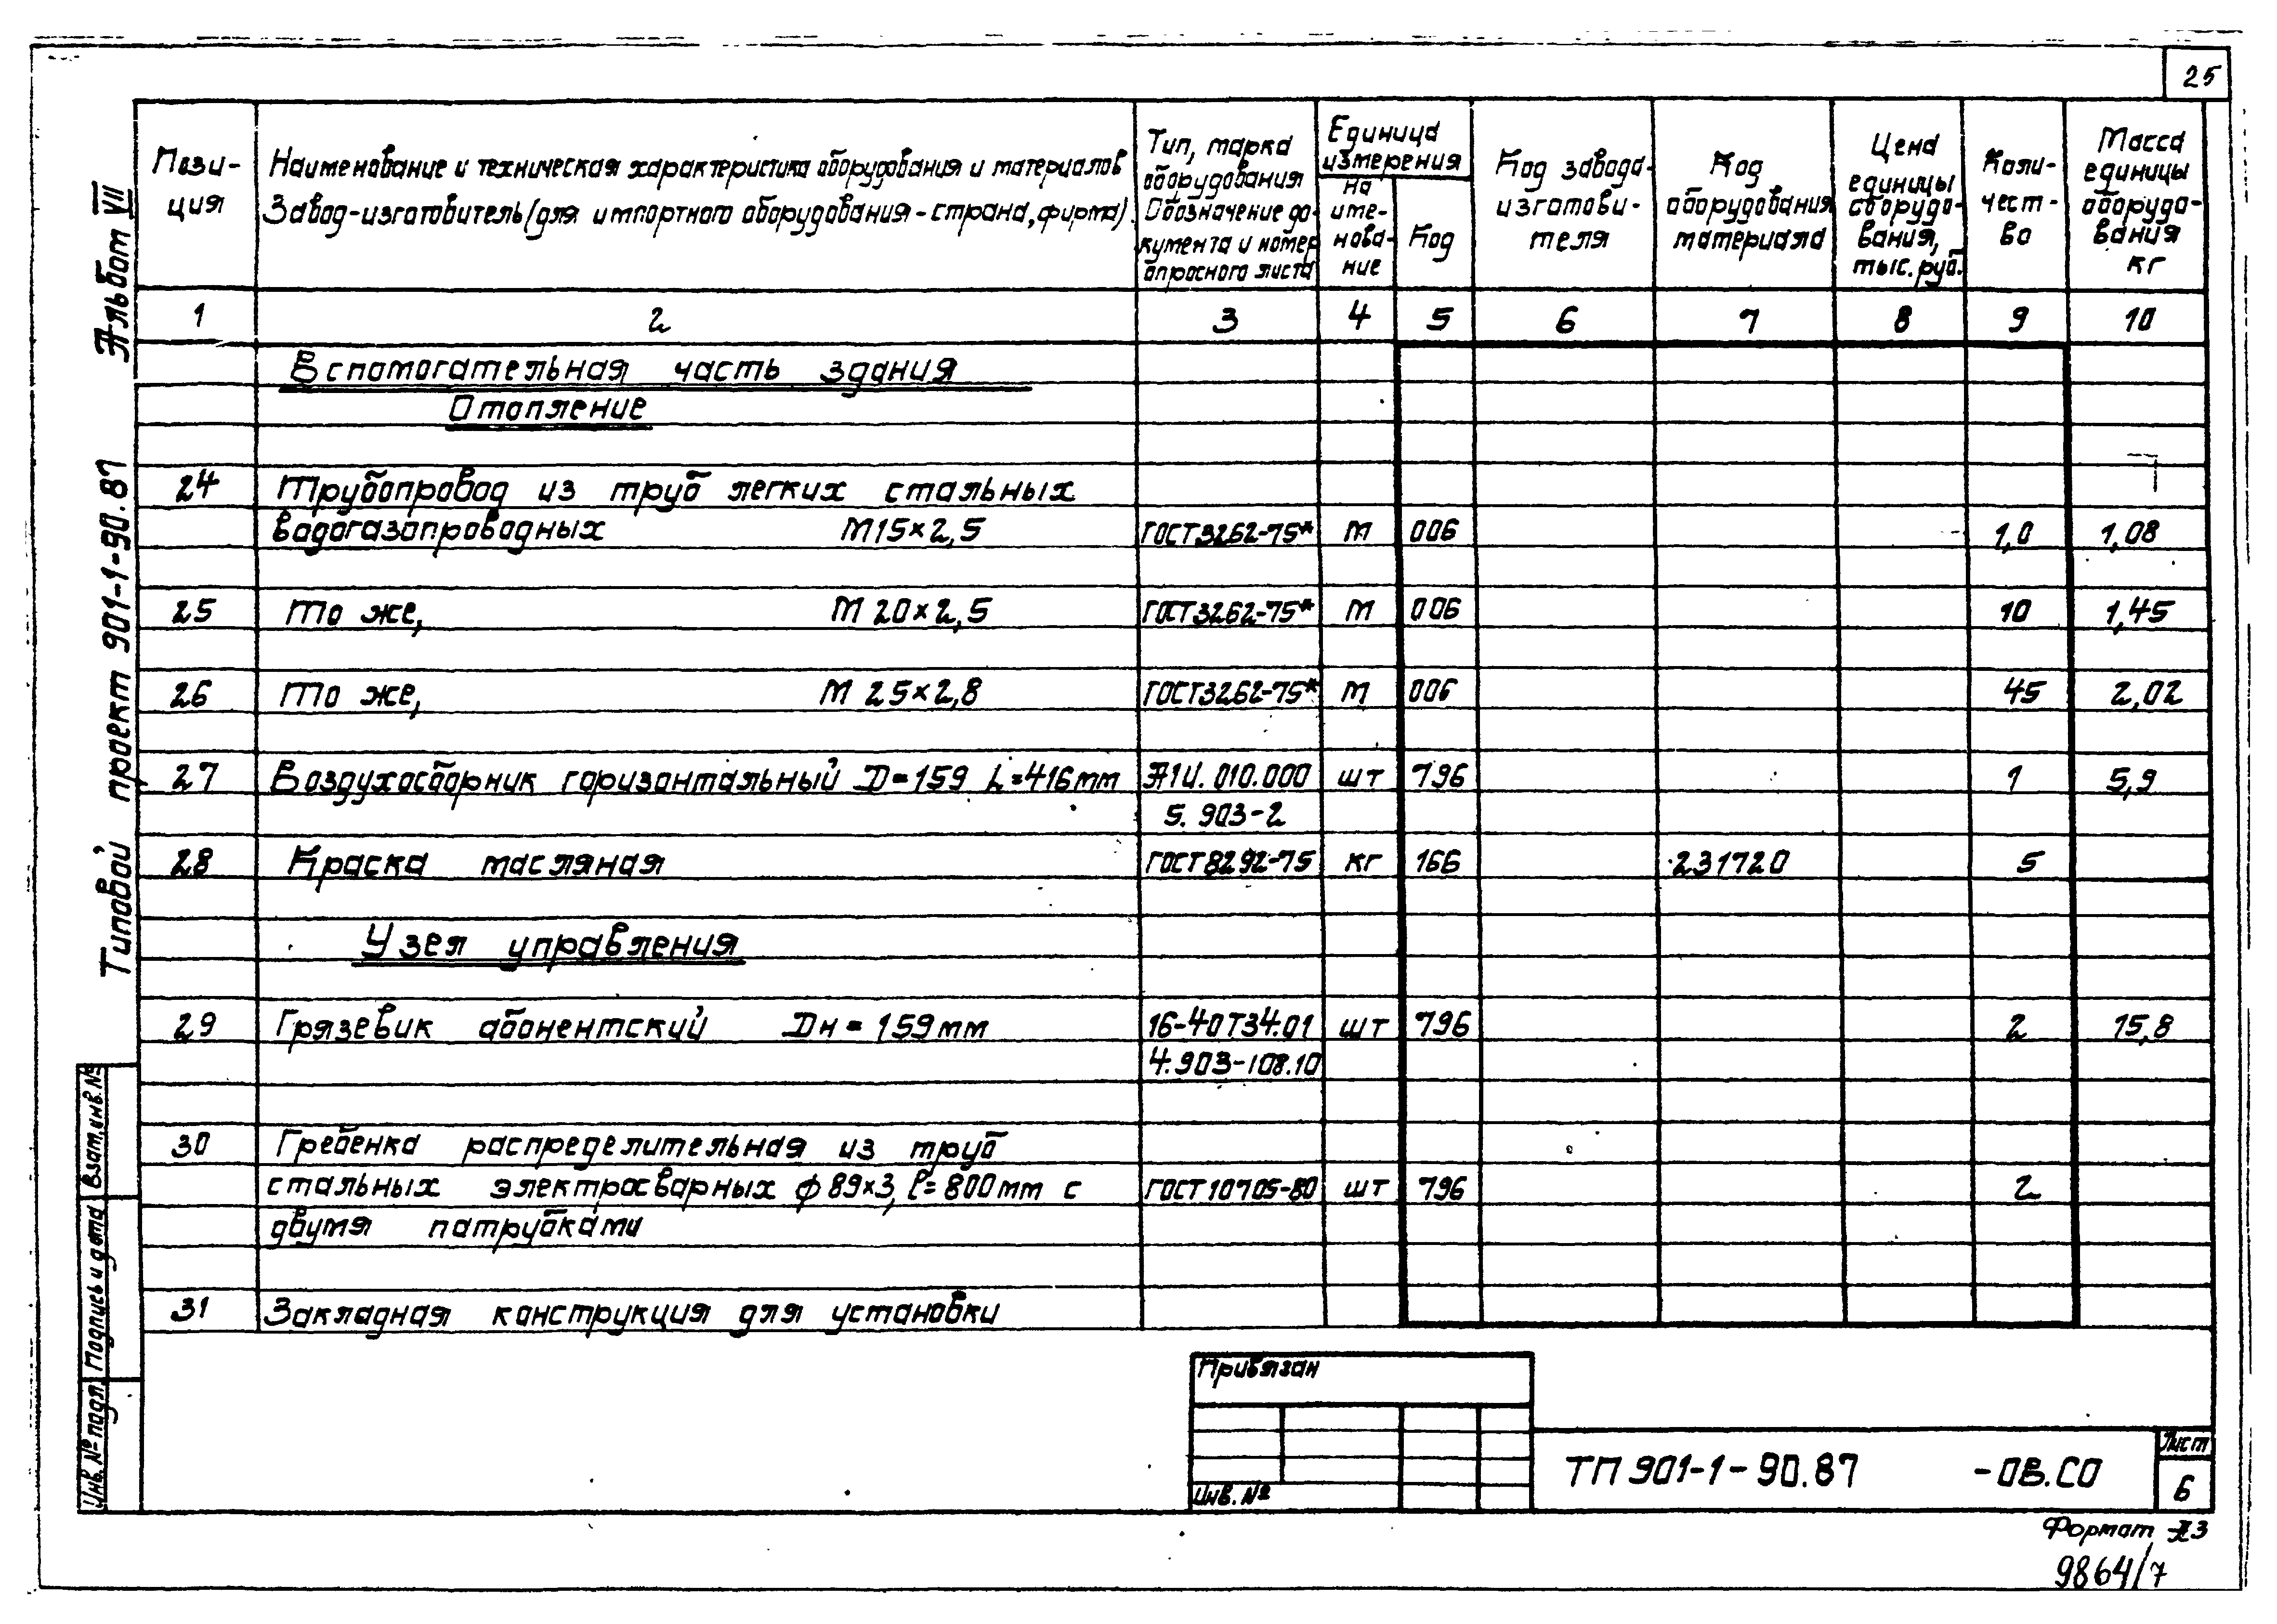 25
Альбом VII
Типовой проект 901-1-90.87
Пози-
ция
Наименование и техническая характеристика оборудования и материалов
Завод-изготовитель (для импортного оборудования - страна, фирма).
Тип, марка
оборудования
Обозначение до-
кумента и номер
опросного листа
Единица
измерения
На
име-
нова-
ние
Код
Код завода-
изготови-
теля
Код
оборудования
материала
Цена
единицы
оборудо-
вания,
тыс. руб.
Коли-
чест-
во
Масса
единицы
оборудо-
вания
кг
1 2 3 4 5 6 7 8 9 10
Вспомогательная часть здания
Отопление
24 Трубопровод из труб легких стальных
водогазопроводных М15×2,5 ГОСТ3262-75* м 006 1,0 1,08
25 То же, М 20×2,5 ГОСТ3262-75* м 006 10 1,45
26 То же, М 25×2,8 ГОСТ3262-75* м 006 45 2,02
27 Воздухосборник горизонтальный D=159 L=416мм А1И.010.000 шт 796 1 5,9
5.903-2
28 Краска масляная ГОСТ8292-75 кг 166 231720 5
Узел управления
29 Грязевик абонентский Dн=159мм 16-40Т34.01 шт 796 2 15,8
4.903-108.10
30 Гребенка распределительная из труб
стальных электросварных ф89×3, ℓ=800мм с ГОСТ10705-80 шт 796 2
двумя патрубками
31 Закладная конструкция для установки
Взам.инв.№
Подпись и дата
Инв.№ подл.
Привязан
Инв.№
ТП 901-1-90.87 -ОВ.СО
Лист
6
Формат А3
9864/7